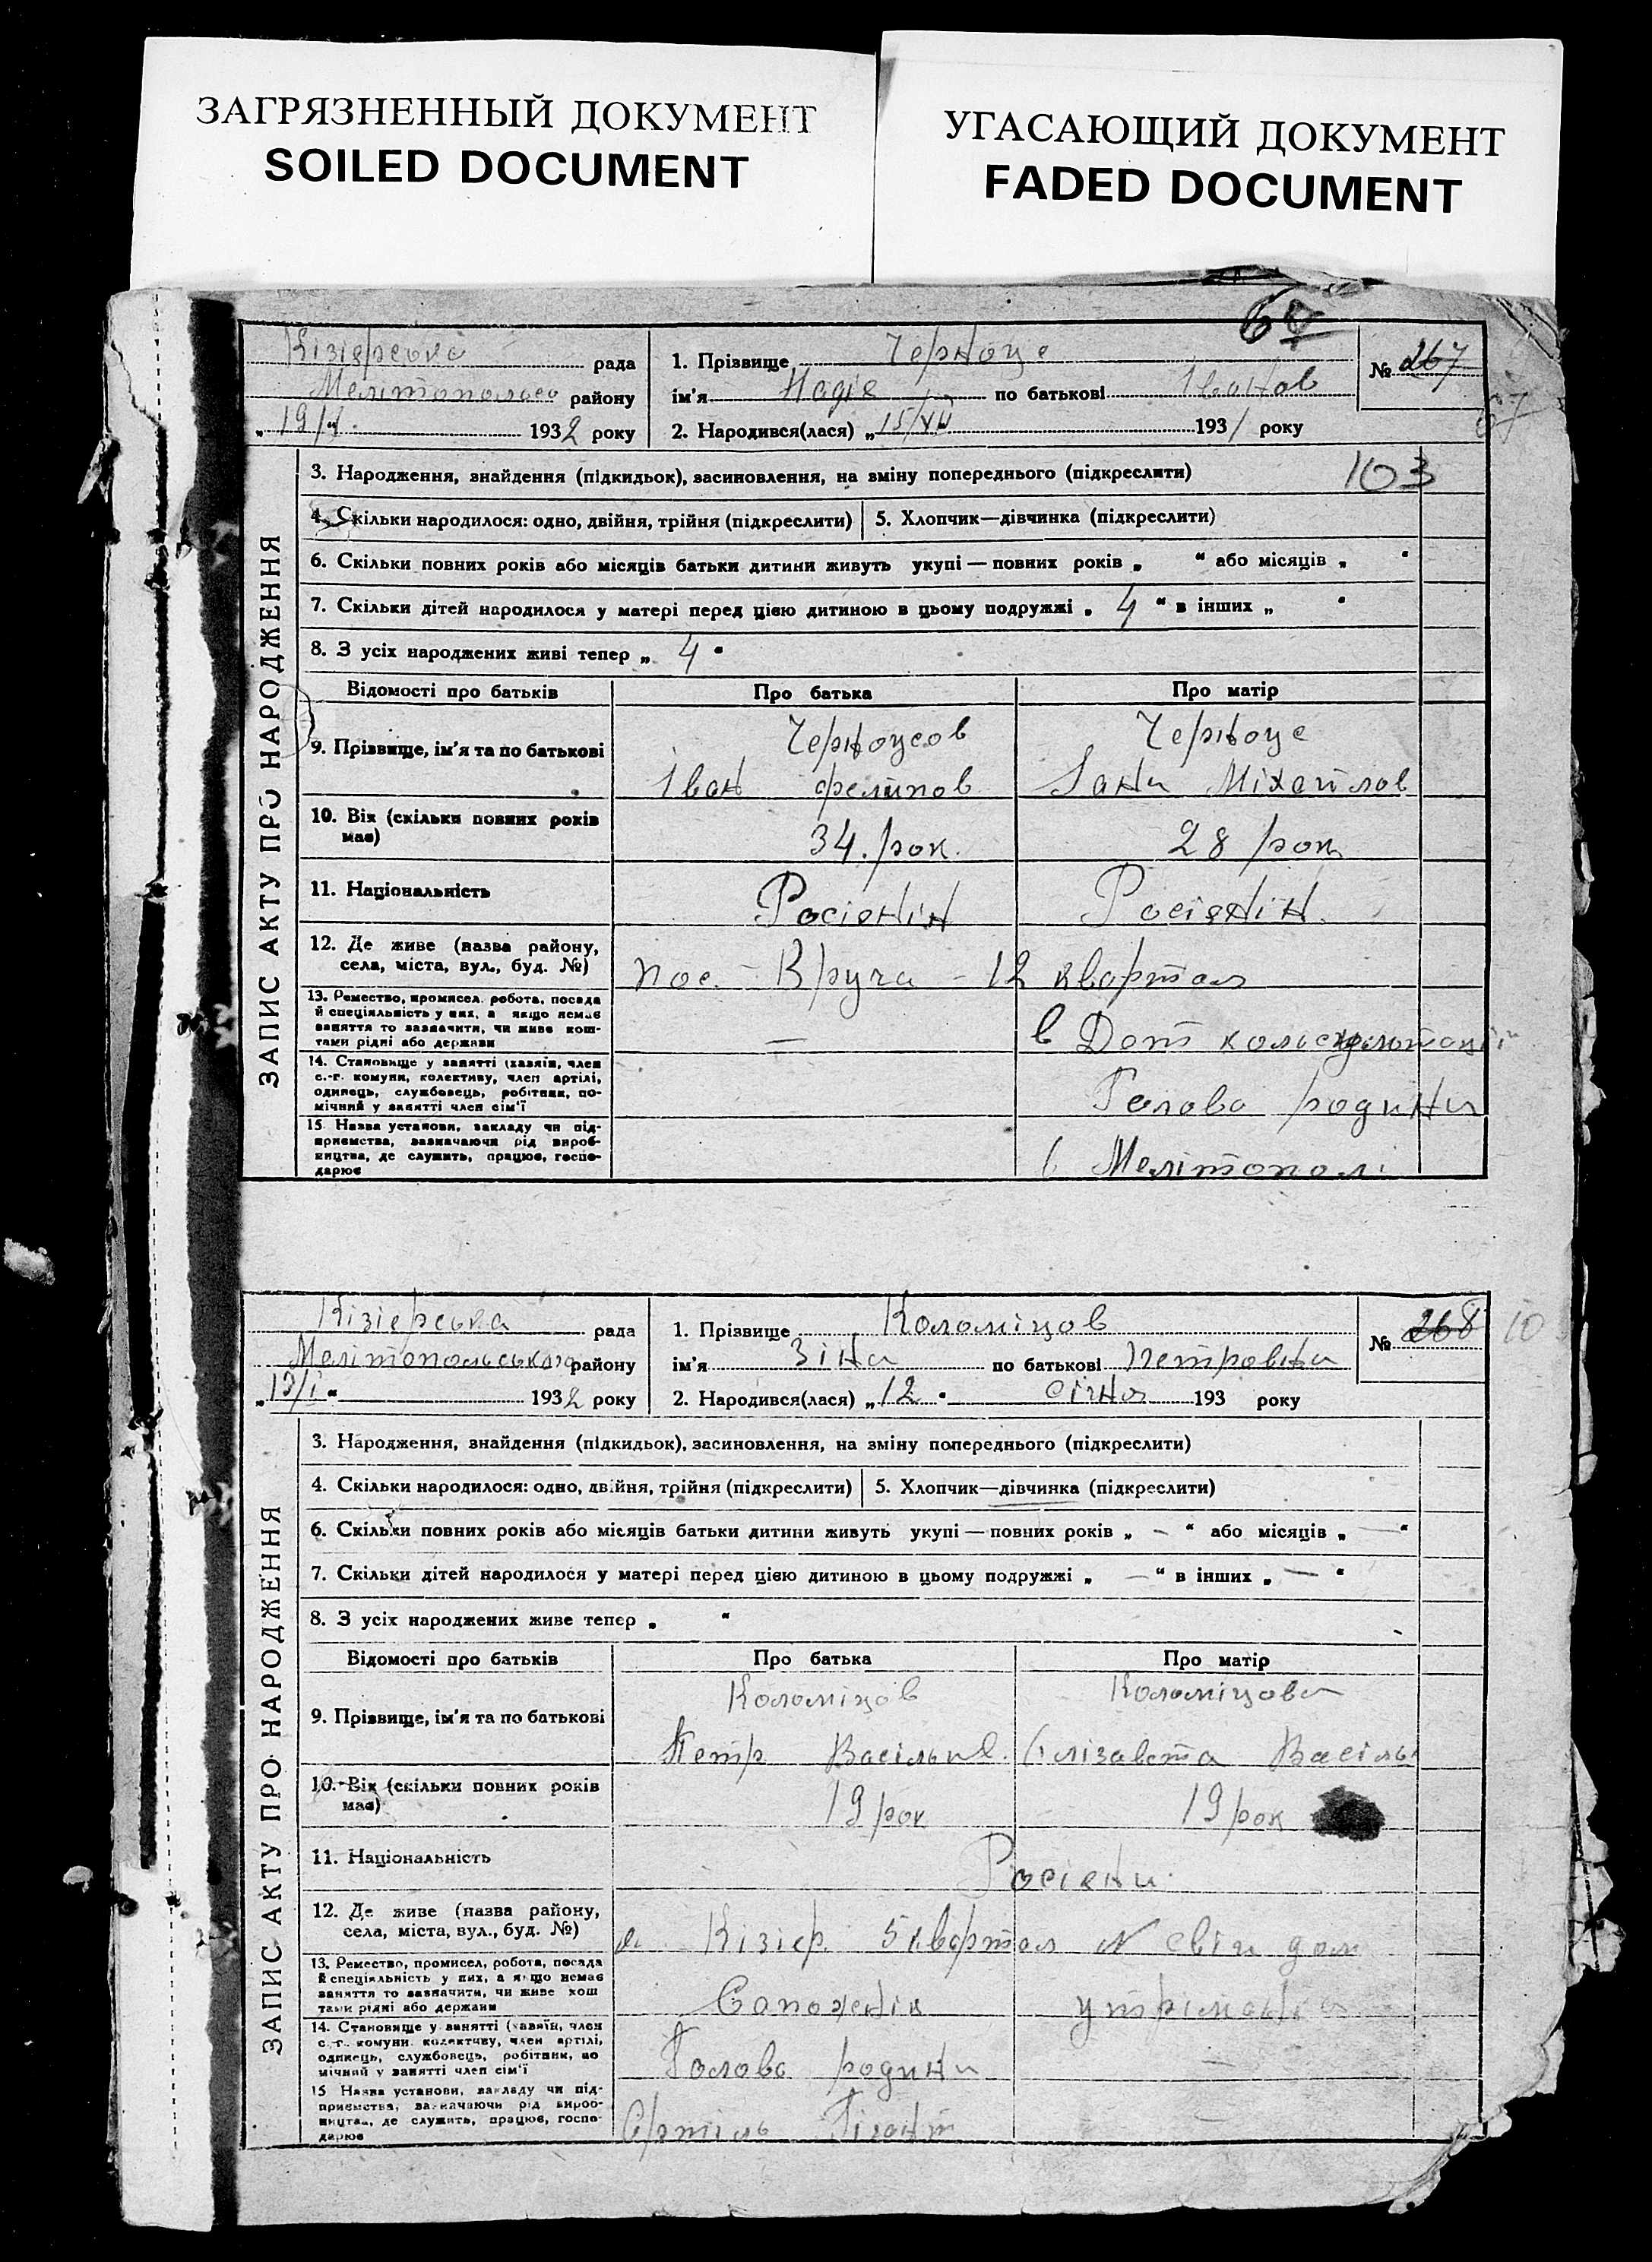 ЗАГРЯЗНЕННЫЙ ДОКУМЕНТ
SOILED DOCUMENT
УГАСАЮЩИЙ ДОКУМЕНТ
FADED DOCUMENT
60
Кізіерсько рада
Мелітопольсо району
1932 року
1. Прізвище Черноус
ім'я Надіє по батькові Іванов
2. Народився(лася) „15/XII 1931 року
№ 267
67
ЗАПИС АКТУ ПРО НАРОДЖЕННЯ
3. Народження, знайдення (підкидьок), засиновлення, на зміну попереднього (підкреслити) 103
4. Скільки народилося: одно, двійня, трійня (підкреслити) 5. Хлопчик—дівчинка (підкреслити)
6. Скільки повних років або місяців батьки дитини живуть укупі — повних років „ “ або місяців „ “
7. Скільки дітей народилося у матері перед цією дитиною в цьому подружжі „ 4 “ в інших „ “
8. З усіх народжених живі тепер „ 4 “
Відомості про батьків Про батька Про матір
9. Прізвище, ім'я та по батькові
Черноусов
Іван Феліпов
Черноус
Міхайлов
10. Вік (скільки повних років має)
34. рок.
28 рок
11. Національність
Росіенін
Росіенін
12. Де живе (назва району, села, міста, вул., буд. №)
пос. - Вруча - 12 квартал
13. Ремество, промисел, робота, посада
й спеціяльність у них, а якщо немає
заняття то зазначити, чи живе кош-
тами рідні або держави
—
в
14. Становище у занятті (хазяїн, член
с.-г. комуни, колективу, член артілі,
одинець, службовець, робітник, по-
мічний у занятті член сім'ї
Голова родини
15. Назва установи, закладу чи під-
приємства, зазначаючи рід вироб-
ництва, де служить, працює, госпо-
дарює
в Мелітополі
Кізіерська рада
Мелітопольського району
„13/І“ 1932 року
1. Прізвище Коломіцов
ім'я Зіна по батькові Петровна
2. Народився(лася) „12“ січня 193 року
№ 268
10
ЗАПИС АКТУ ПРО НАРОДЖЕННЯ
3. Народження, знайдення (підкидьок), засиновлення, на зміну попереднього (підкреслити)
4. Скільки народилося: одно, двійня, трійня (підкреслити) 5. Хлопчик—дівчинка (підкреслити)
6. Скільки повних років або місяців батьки дитини живуть укупі — повних років „ — “ або місяців „ — “
7. Скільки дітей народилося у матері перед цією дитиною в цьому подружжі „ — “ в інших „ — “
8. З усіх народжених живе тепер „ “
Відомості про батьків Про батька Про матір
9. Прізвище, ім'я та по батькові
Коломіцов
Петр Васільив.
Коломіцова
Єлізавєта Васіль
10. Вік (скільки повних років має)
19 рок
19 рок
11. Національність
Росіени
12. Де живе (назва району, села, міста, вул., буд. №)
Кізіер 5 квартал № свій дом
13. Ремество, промисел, робота, посада
й спеціяльність у них, а якщо немає
заняття то зазначити, чи живе кош
тами рідні або держави
Сапожнік
14. Становище у занятті (хазяїн, член
с.-г. комуни, колективу, член артілі,
одинець, службовець, робітник, по
мічний у занятті член сім'ї
Голова родини
—
15 Назва установи, закладу чи під-
приємства, зазначаючи рід вироб-
ництва, де служить, працює, госпо-
дарює
Гігант